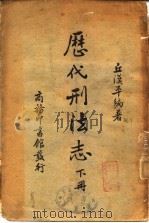 丘漢平編著
歷代刑法志 下册
商務印書館發行